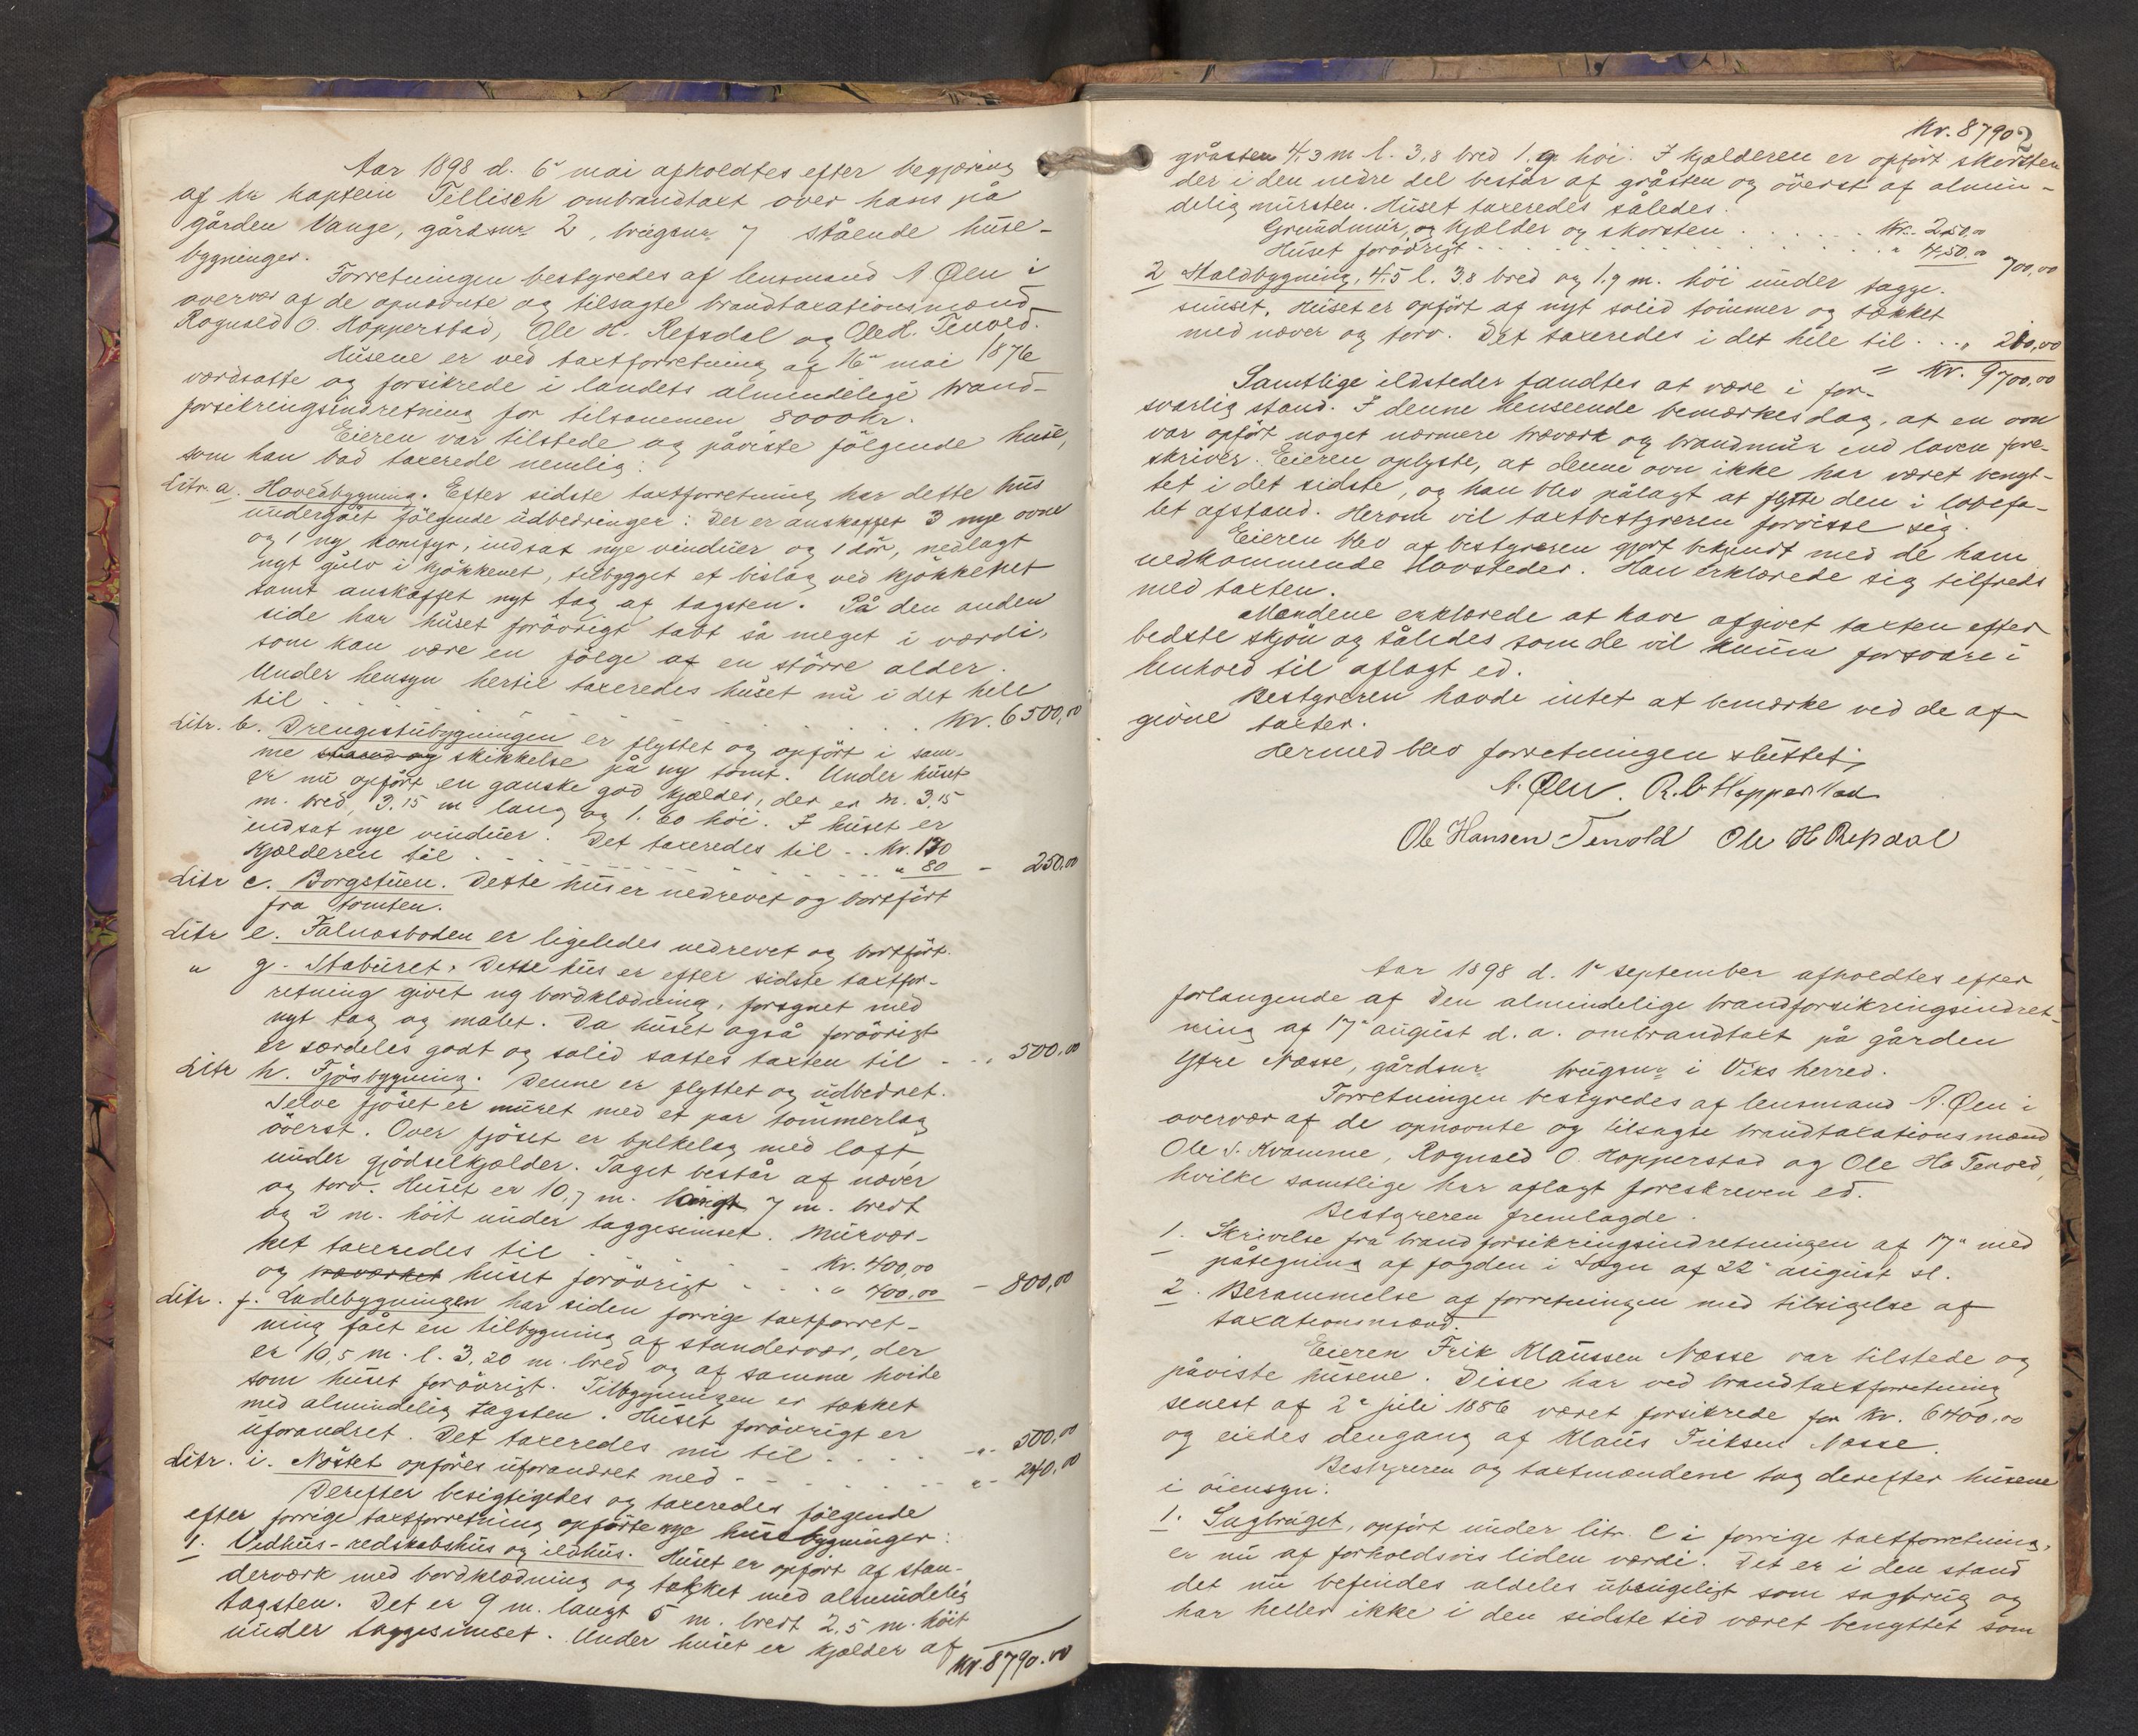 Aar 1898 d. 6te mai afholdtes efter begjæring
af hr kaptein Tillisch ombrandtaxt over hans på
gården Vange, gårdsnr 2, brugsnr 7 stående huse-
bygninger.
Forretningen bestyredes af lensmand A Øen i
overvær af de opnævnte og tilsagte brandtaxationsmænd
Rognald O. Hopperstad, Ole H. Refsdal og Ole H. Tenold.
Husene er ved taxtforretning af 16de mai 1876
værdsatte og forsikrede i landets almindelige brand-
forsikringsindretning for tilsammen 8000 kr.
Eieren var tilstede og påviste følgende huse,
som han bad taxerede nemlig:
Litr. a. Hovedbygning. Efter sidste taxtforretning har dette hus
undergået følgende udbedringer: Der er anskaffet 3 nye ovne
og 1 ny komfyr, indsat nye vinduer og 1 dør, nedlagt
nyt gulv i kjøkkenet, tilbygget et bislag ved kjøkkenet
samt anskaffet nyt tag af tagsten. På den anden
side har huset forøvrigt tabt så meget i værdi,
som kan være en følge af en större alder.
Under hensyn hertil taxeredes huset nu i det hele
til . . . . Kr. 6500,00
Litr. b. Drengestubygningen er flyttet og opført i sam-
me skikkelse på ny tomt. Under huset
er nu opført en ganske god kjælder, der er m. 3.15
m. bred, 3.15 m lang og 1.60 høi. I huset er
indsat nye vinduer. Det taxeredes til . . Kr. 170
Kjælderen til . . . . " 80 - 250,00
Litr c. Borgstuen. Dette hus er nedrevet og bortført
fra tomten.
Litr e. Falnæsboden er ligeledes nedrevet og bortført.
" g. Staburet. Dette hus er efter sidste taxtfor-
retning givet ny bordklædning, forsynet med
nyt tag og malet. Da huset også forøvrigt
er særdeles godt og solid sattes taxten til - . . 500,00
Litr h. Fjøsbygning. Denne er flyttet og udbedret.
Selve fjøset er muret med et par tømmerlag
øverst. Over fjøset er bjelkelag med loft,
under gjødselkjælder. Taget består af næver
og torv. Huset er 10,7 m. langt 7 m. bredt
og 2 m. høit under taggesimset. Murvær-
ket taxeredes til . . . Kr. 400,00
og træværket huset forøvrigt . . . " 400,00 - 800,00
Litr. f. Ladebygningen har siden forrige taxtforret-
ning fått en tilbygning af standervær, der
er 10,5 m. l. 3,20 m. bred og af samme høide
som huset forøvrigt. Tilbygningen er tækket
med almindelig tagsten. Huset forøvrigt er
uforandret. Det taxeredes nu til . . . . - " - 500,00
Litr. i. Nøstet opføres uforandret med . . . . " - 240,00
Derefter besigtigedes og taxeredes følgende
efter forrige taxtforretning opførte nye husebygninger:
1. Vedhus-redskabshus og ildhus. Huset er opført af stan-
derværk med bordklædning og tækket med almindelig
tagsten. Det er 9 m. langt 5 m. bredt 2,5 m. høit
under taggesimset. Under huset er kjælder af
Kr. 8790.00
Kr. 8790 2
gråsten 4,3 m l. 3,8 bred 1,9 høi. I kjælderen er opført skorsten
der i den nedre del består af gråsten og øverst af almin-
delig mursten. Huset taxeredes således:
Grundmur, og kjælder og skorsten . . . . . Kr. 250,00
Huset forøvrigt . . . . . . . . . " 450,00 700,00
2 Staldbygning, 4.5 l. 3.8 bred og 1.9 m. høi under tagge-
simset. Huset er opført af nyt solid tømmer og tækket
med næver og torv. Det taxeredes i det hele til . . . " 210,00
= Kr. 9700,00
Samtlige ildsteder fandtes at være i for-
svarlig stand. I denne henseende bemærkes dog, at en ovn
var opført noget nærmere træværk og brandmur end loven fore-
skriver. Eieren oplyste, at denne ovn ikke har været benyt-
tet i det sidste, og han blev pålagt at flytte den i lovefa-
let afstand. Herom vil taxtbestyreren forvisse sig.
Eieren blev af bestyreren gjort bekjendt med de ham
vedkommende lovsteder. Han erklærede sig tilfreds
med taxten.
Mændene erklærede at have afgivet taxten efter
bedste skjøn og således som de vil kunne forsvare i
henhold til aflagt ed.
Bestyreren havde intet at bemærke ved de af-
givne taxter.
Hermed blev forretningen sluttet;
A. Øen. R. O Hopperstad
Ole Hansen Tenold Ole H Refsdal
Aar 1898 d. 1te september afholdtes efter
forlangende af den almindelige brandforsikringsindret-
ning af 17de august d. a. ombrandtaxt på gården
Ytre Næsse, gårdsnr brugsnr i Viks herred.
Forretningen bestyredes af lensmand A. Øen i
overvær af de opnævnte og tilsagte brandtaxationsmænd
Ole S. Kvamme, Rognald O. Hopperstad og Ole Hs Tenold,
hvilke samtlige har aflagt foreskreven ed.
Bestyreren fremlagde.
1. Skrivelse fra brandforsikringsindretningen af 17de med
påtegning af fogden i Sogn af 22de august sl.
2. Berammelse af forretningen med tilsigelse af
taxationsmænd.
Eieren Frik Klaussen Næsse var tilstede og
påviste husene. Disse har ved brandtaxtforretning
senest af 2de juli 1886 været forsikrede for Kr. 6400,00
og eiedes dengang af Klaus Friksen Næsse.
Bestyreren og taxtmændene tog derefter husene
i øiensyn:
1. Sagbruget, opført under litr. C i forrige taxtforretning,
er nu af forholdsvis liden værdi. Det er i den stand
det nu befindes aldeles ubrugeligt som sagbrug og
har heller ikke i den sidste tid været benyttet som